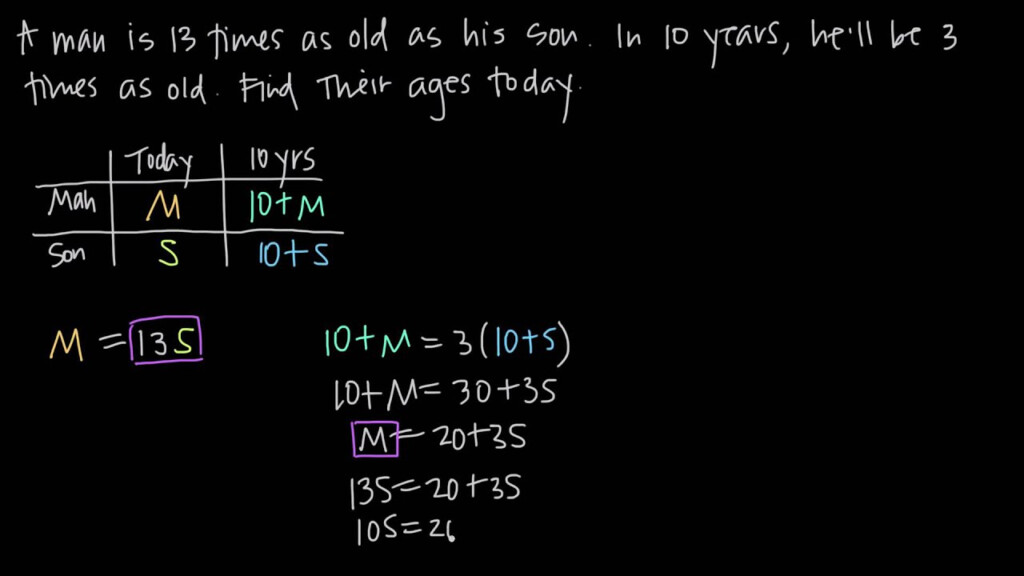 A man is 13 times as old as his son. In 10 years, he'll be 3
times as old. Find Their ages today.
Today 10 yrs
Man M 10+M
Son S 10+S
M = 13S
10+M = 3(10+S)
10+M = 30+3S
M = 20+3S
13S = 20+3S
10S = 2